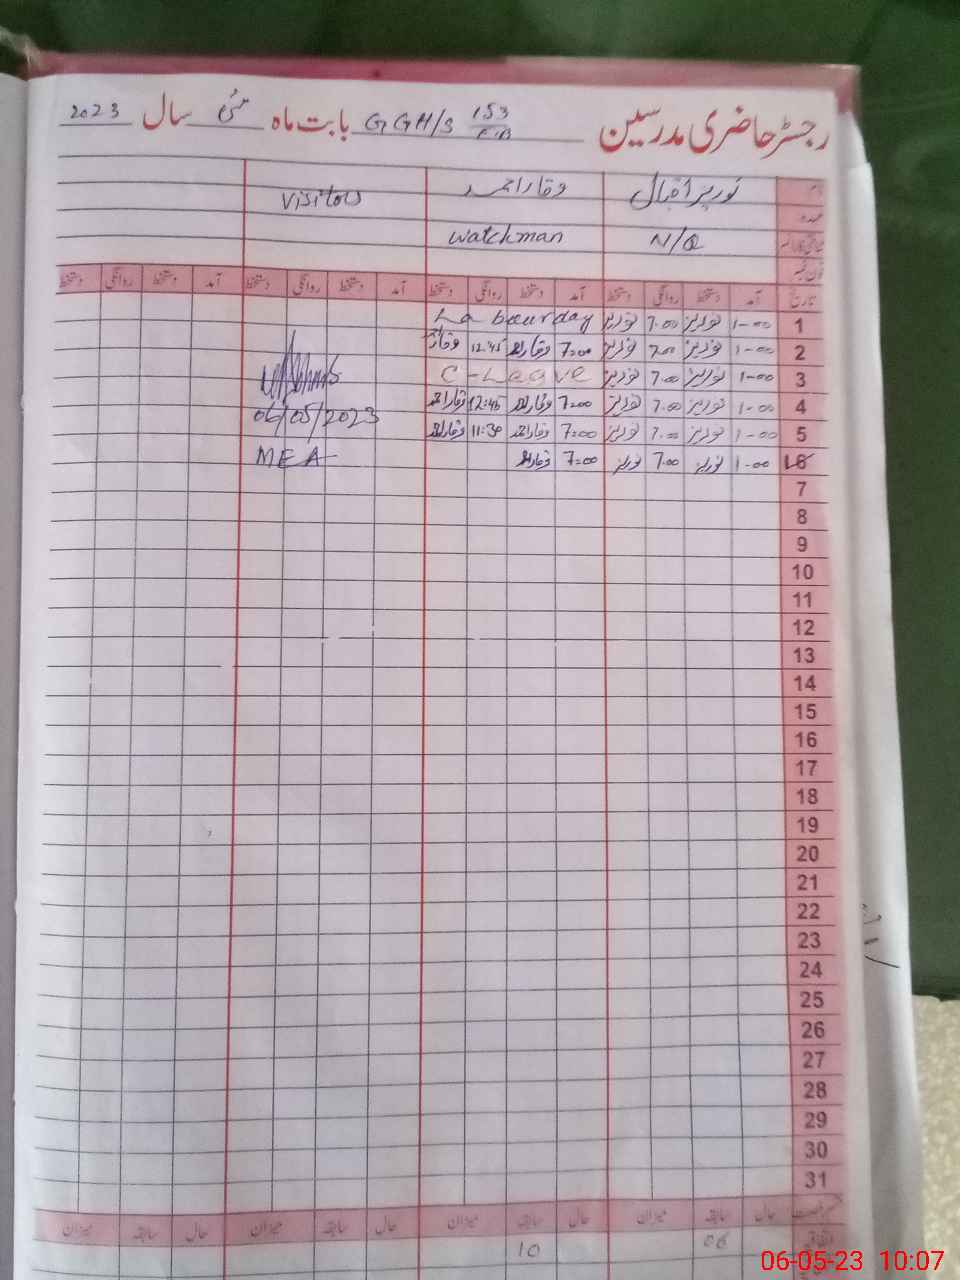 رجسٹر حاضری مدرسین GGH/S 153/EB بابت ماہ مئی سال 2023
وقار احمد Visitors
Watchman N/Q
تاریخ آمد دستخط روانگی دستخط آمد دستخط روانگی دستخط آمد دستخط روانگی دستخط آمد دستخط روانگی دستخط
1 1-00 نوریز 7.00 نوریز Labourday
2 1-00 نوریز 7.00 نوریز 7=00 وقار احمد 12:45 وقار
3 1-00 نوریز 7.00 نوریز C-Leave
4 1-00 نوریز 7.00 نوریز 7=00 وقار احمد 12:45 وقار احمد 06/05/2023
5 1-00 نوریز 7.00 نوریز 7=00 وقار احمد 11:30 وقار احمد
6 1-00 نوریز 7.00 نوریز 7=00 وقار احمد MEA
7
8
9
10
11
12
13
14
15
16
17
18
19
20
21
22
23
24
25
26
27
28
29
30
31
حال سابقہ میزان حال سابقہ میزان حال سابقہ میزان حال سابقہ میزان
06 10
06-05-23 10:07